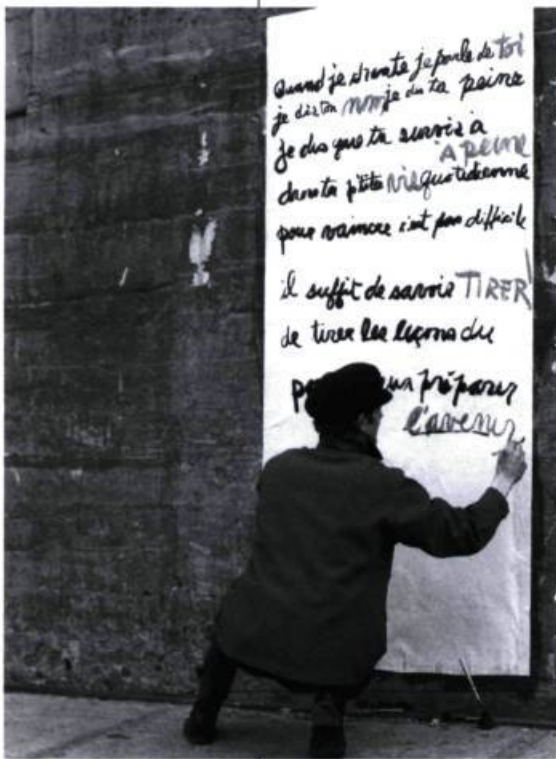 Quand je chante je parle de toi
je dis ton nom je dis ta peine
je dis que tu survis à
À PEINE
dans ta p'tite vie quotidienne
pour vaincre c'est pas difficile
il suffit de savoir TIRER!
de tirer les leçons du
préparer
l'avenir